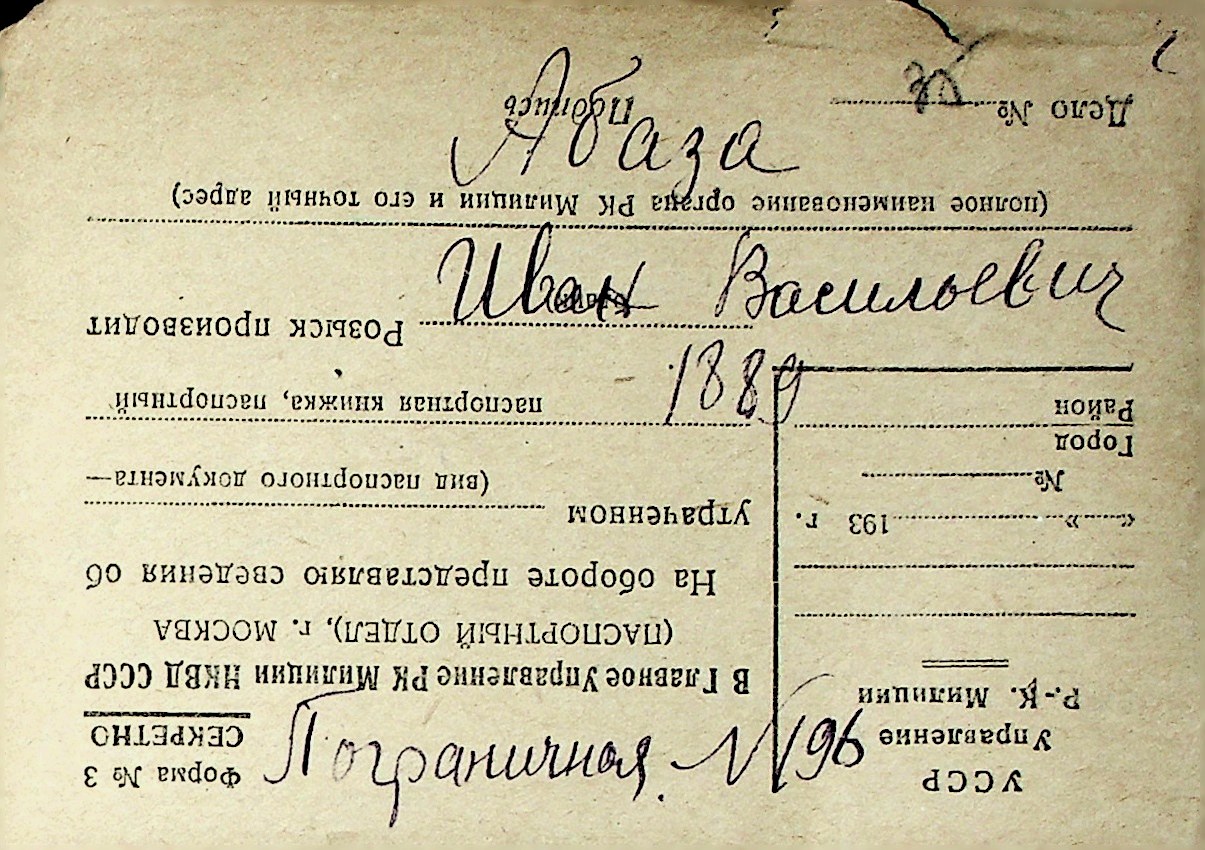 Абаза
Иван Васильевич
1889
Пограничная N 96
УССР
Управление
Р.-К. Милиции
«......»..................193 г.
№
Город
Район
Форма № 3
СЕКРЕТНО
В Главное Управление РК Милиции НКВД СССР
(ПАСПОРТНЫЙ ОТДЕЛ), г. МОСКВА
На обороте представляю сведения об
утраченном
(вид паспортного документа—
паспортная книжка, паспортный
Розыск производит
(полное наименование органа РК Милиции и его точный адрес)
Дело №
Подпись